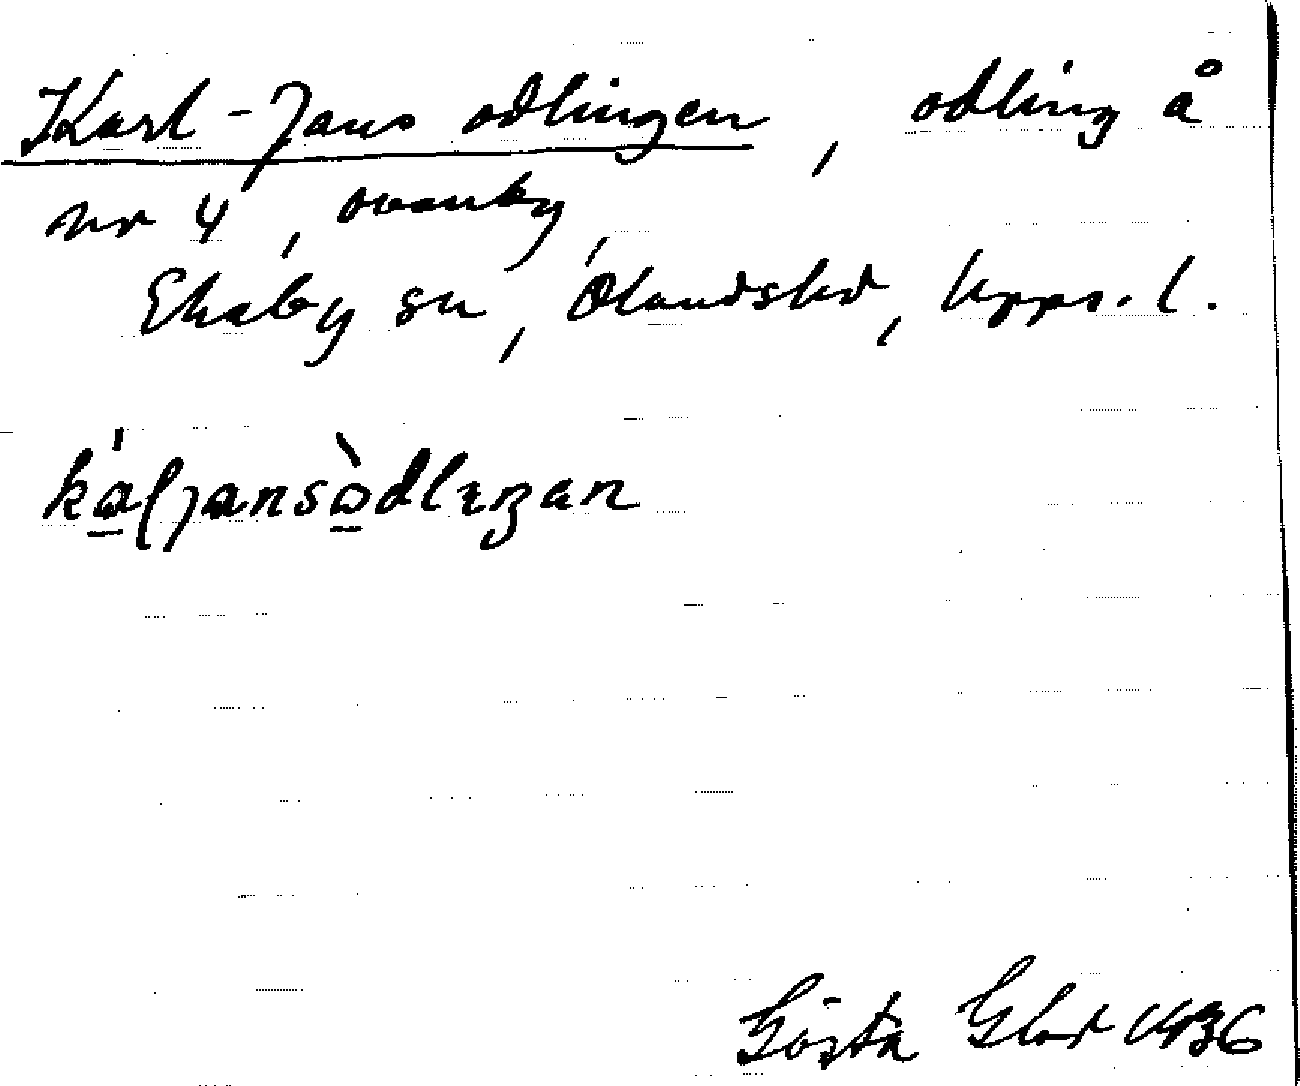 Karl-Jans odlingen, odling å
nr 4, ovanby,
Ekeby sn, Ölandshd, Upps. l.
kál̨jansòdlıŋan
Gösta Glad 1936